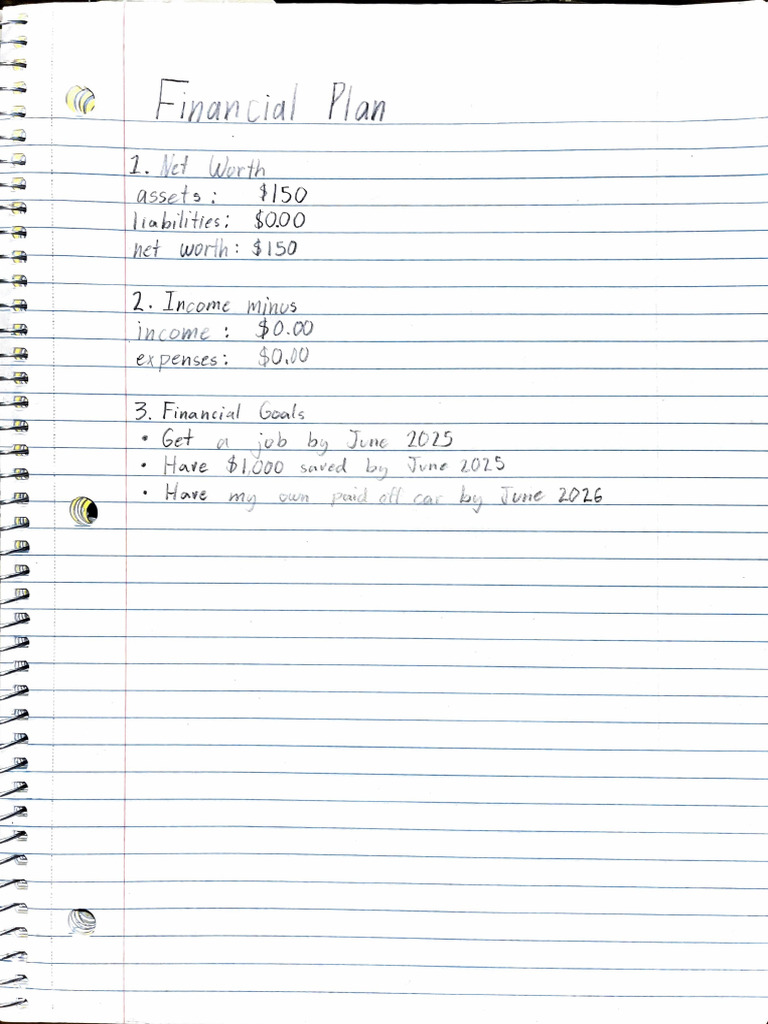 Financial Plan
1. Net Worth
assets: $150
liabilities: $0.00
net worth: $150
2. Income minus
income: $0.00
expenses: $0.00
3. Financial Goals
• Get a job by June 2025
• Have $1,000 saved by June 2025
• Have my own paid off car by June 2026